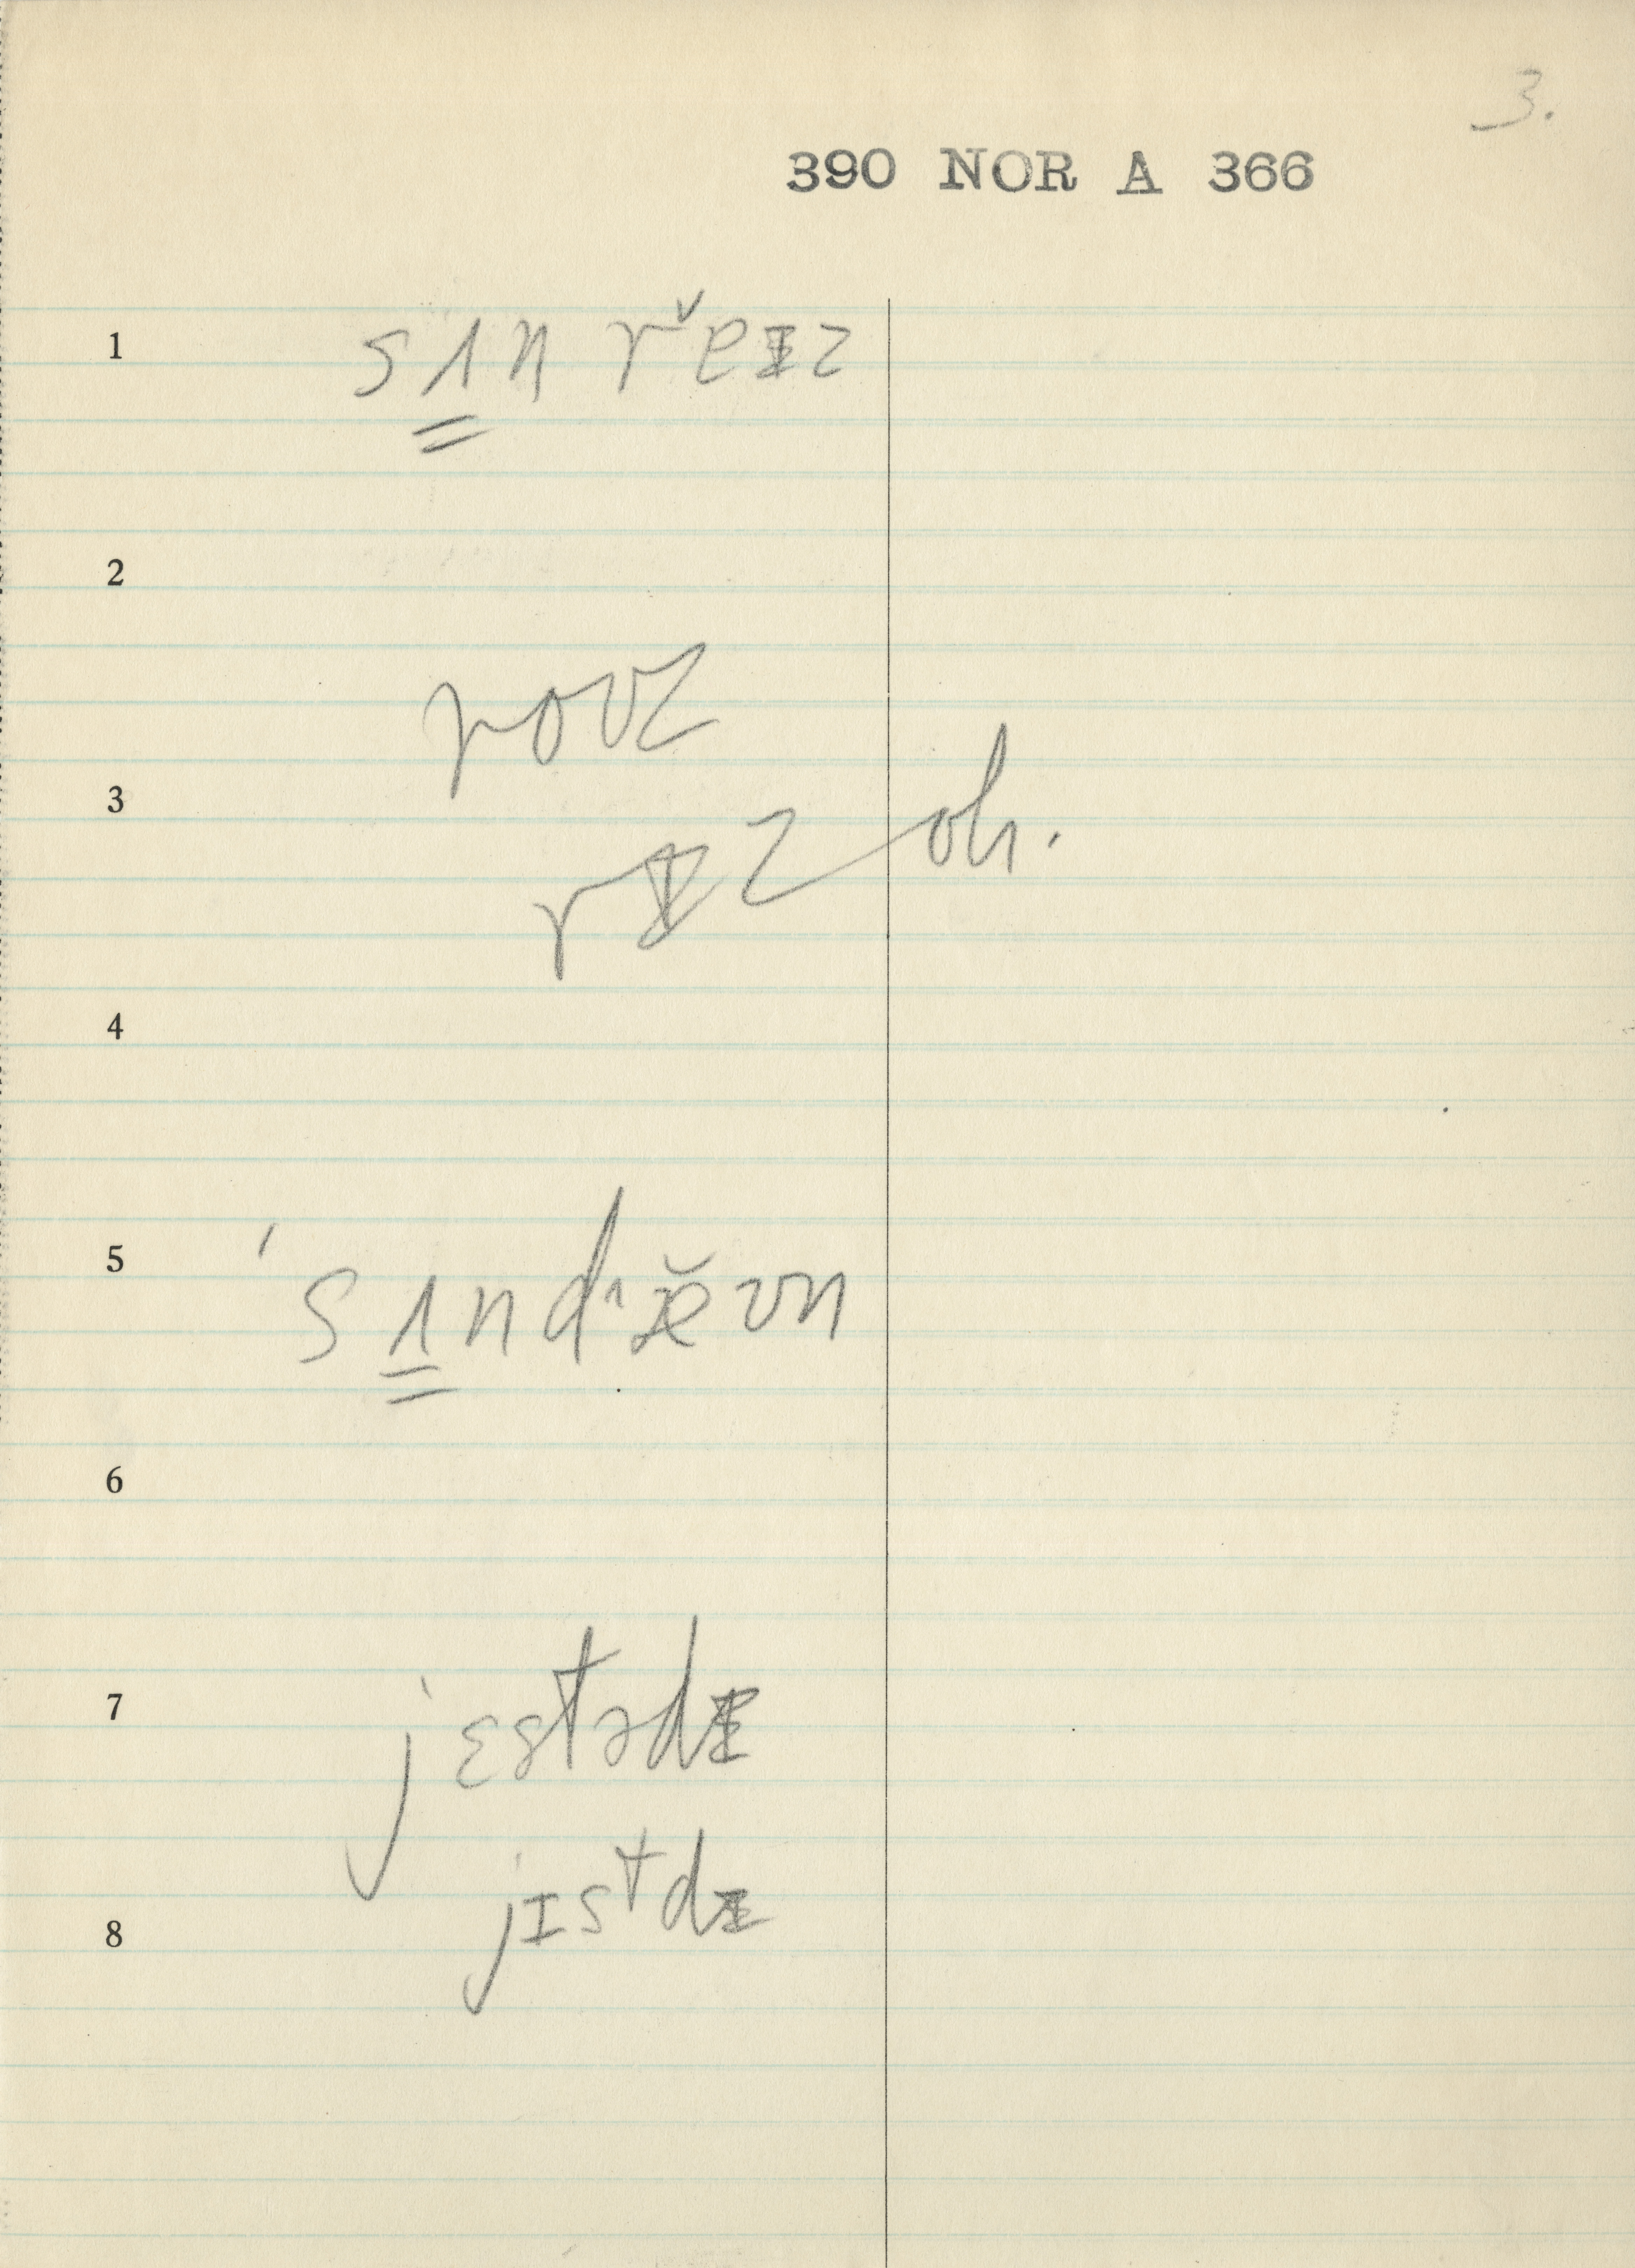 3.
390 NOR A 366
1 sʌ̳n rěɪz
2
rouz
3
rɪz oh.
4
5 ˈsʌ̳ndæ̆ʊn
6
7 jɛstədɪ
jɪstdɪ
8